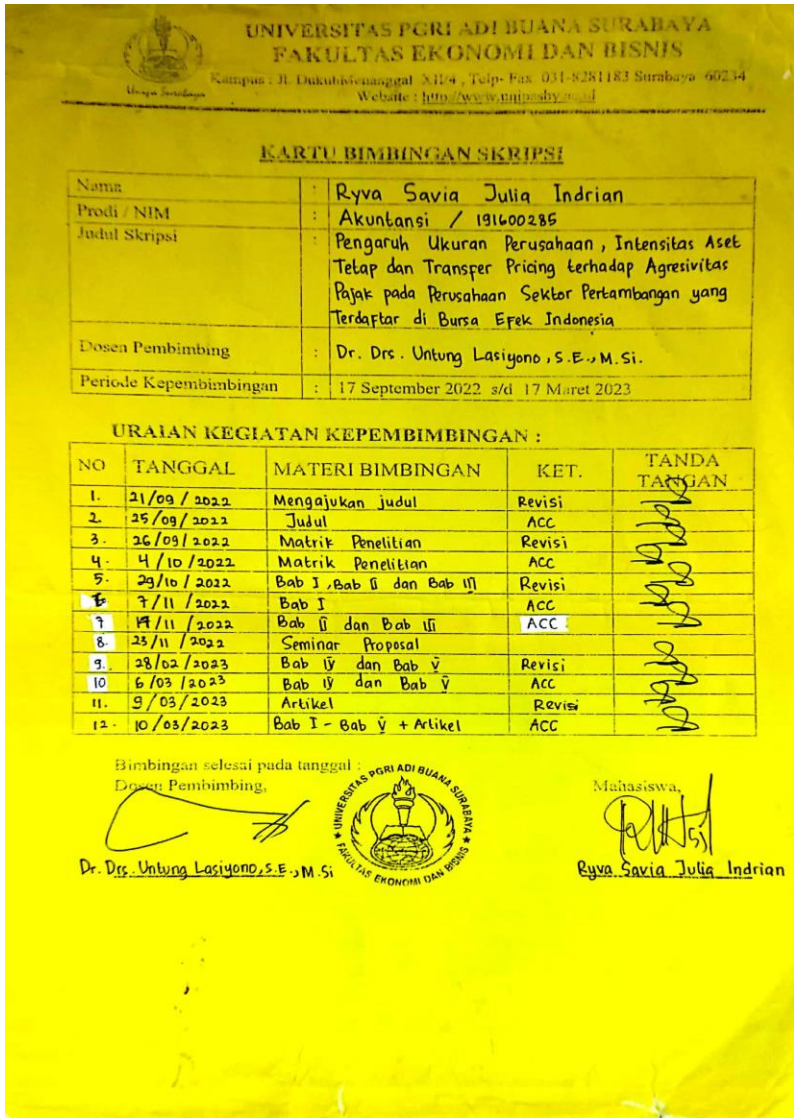 UNIVERSITAS PGRI ADI BUANA SURABAYA
FAKULTAS EKONOMI DAN BISNIS
Kampus : Jl. Dukuh Menanggal XII/4 , Telp- Fax 031-8281183 Surabaya 60234
Website : http://www.unipasby.ac.id
KARTU BIMBINGAN SKRIPSI
Nama : Ryva Savia Julia Indrian
Prodi / NIM : Akuntansi / 191600285
Judul Skripsi : Pengaruh Ukuran Perusahaan , Intensitas Aset
Tetap dan Transfer Pricing terhadap Agresivitas
Pajak pada Perusahaan Sektor Pertambangan yang
Terdaftar di Bursa Efek Indonesia
Dosen Pembimbing : Dr. Drs. Untung Lasiyono, S.E., M.Si.
Periode Kepembimbingan : 17 September 2022 s/d 17 Maret 2023
URAIAN KEGIATAN KEPEMBIMBINGAN :
NO TANGGAL MATERI BIMBINGAN KET. TANDA TANGAN
1. 21/09/2022 Mengajukan judul Revisi
2. 25/09/2022 Judul ACC
3. 26/09/2022 Matrik Penelitian Revisi
4. 4/10/2022 Matrik Penelitian ACC
5. 29/10/2022 Bab I, Bab II dan Bab III Revisi
7/11/2022 Bab I ACC
7 /11/2022 Bab II dan Bab III ACC
8. 23/11/2022 Seminar Proposal
9. 28/02/2023 Bab IV dan Bab V Revisi
10 6/03/2023 Bab IV dan Bab V ACC
11. 9/03/2023 Artikel Revisi
12. 10/03/2023 Bab I - Bab V + Artikel ACC
Bimbingan selesai pada tanggal :
Dosen Pembimbing, Mahasiswa,
UNIVERSITAS PGRI ADI BUANA SURABAYA
FAKULTAS EKONOMI DAN BISNIS
Dr. Drs. Untung Lasiyono, S.E., M.Si Ryva Savia Julia Indrian